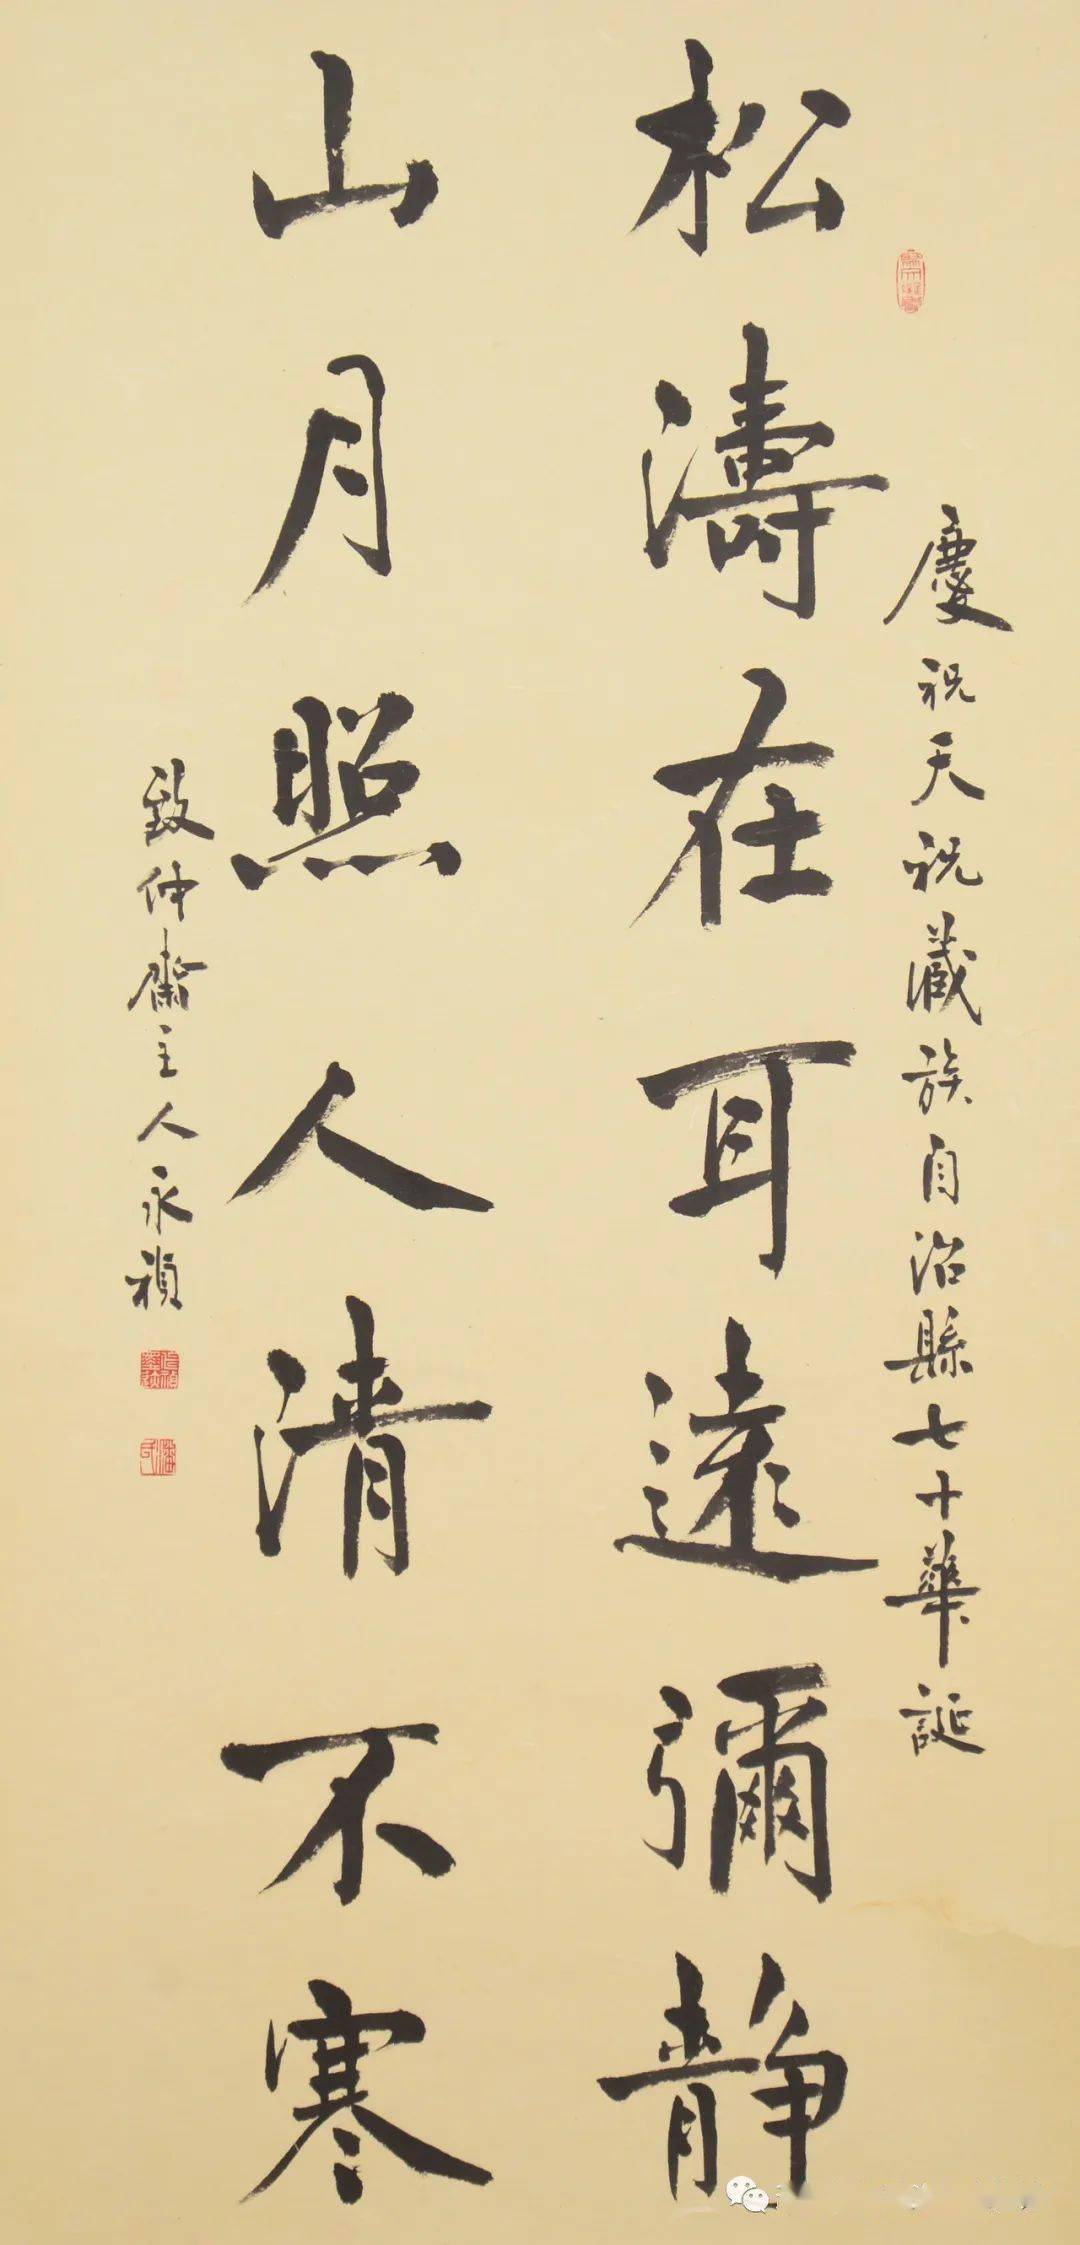 慶祝天祝藏族自治縣七十華誕
松濤在耳遠彌靜
山月照人清不寒
致仲齋主人永禎